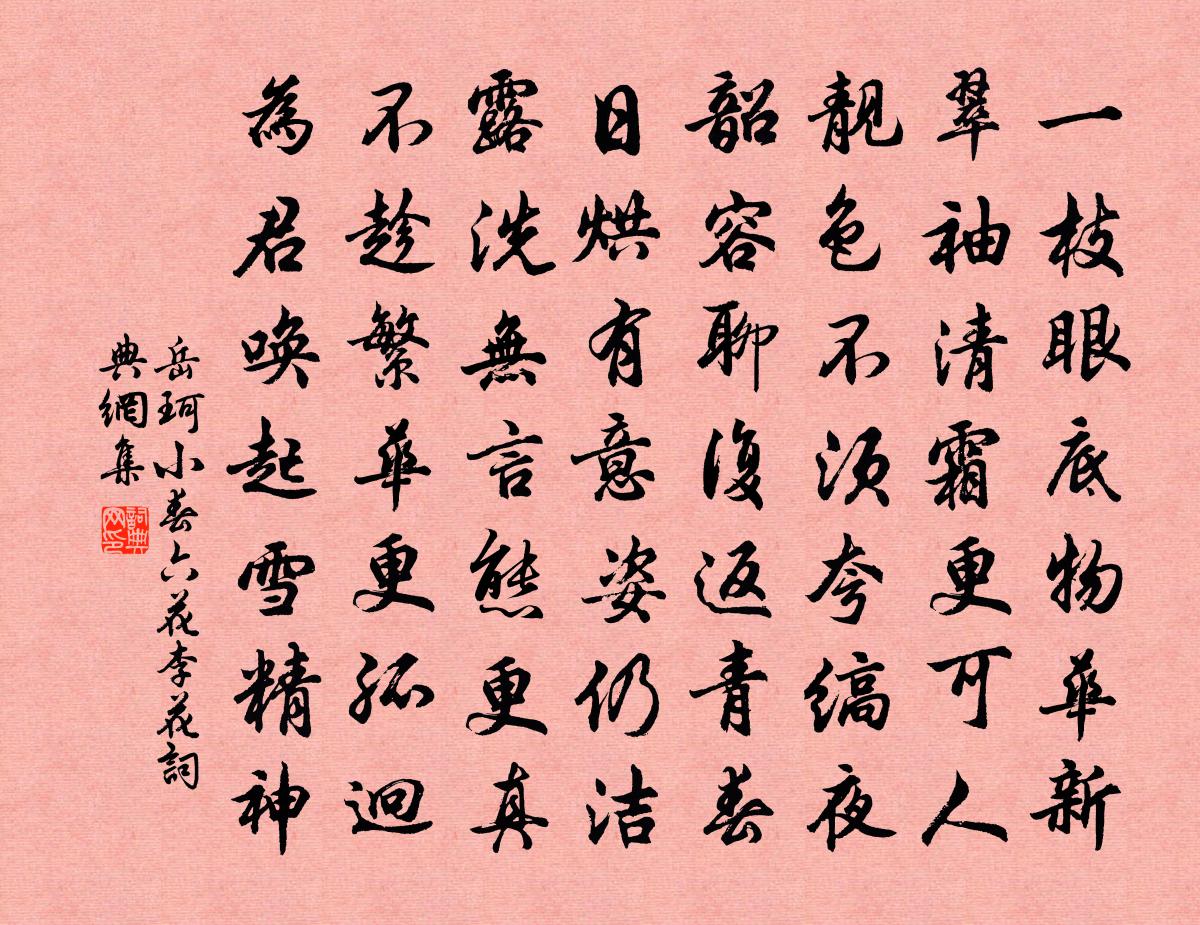 一枝眼底物華新
翠袖清霜更可人
靚色不須夸縞夜
韶容聊復返青春
日烘有意姿仍洁
露洗無言態更真
不趁繁華更孤迥
為君喚起雪精神
岳珂小春六花李花詞
典網集
詞典网印